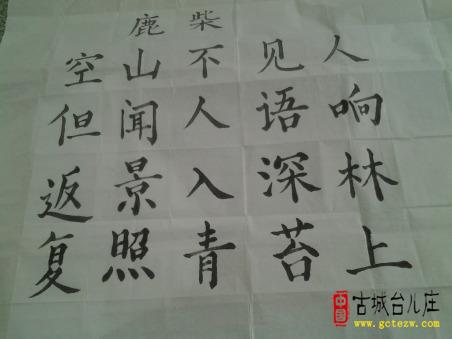 鹿柴
空山不见人
但闻人语响
返景入深林
复照青苔上
中国
古城台儿庄
www.gctezw.com